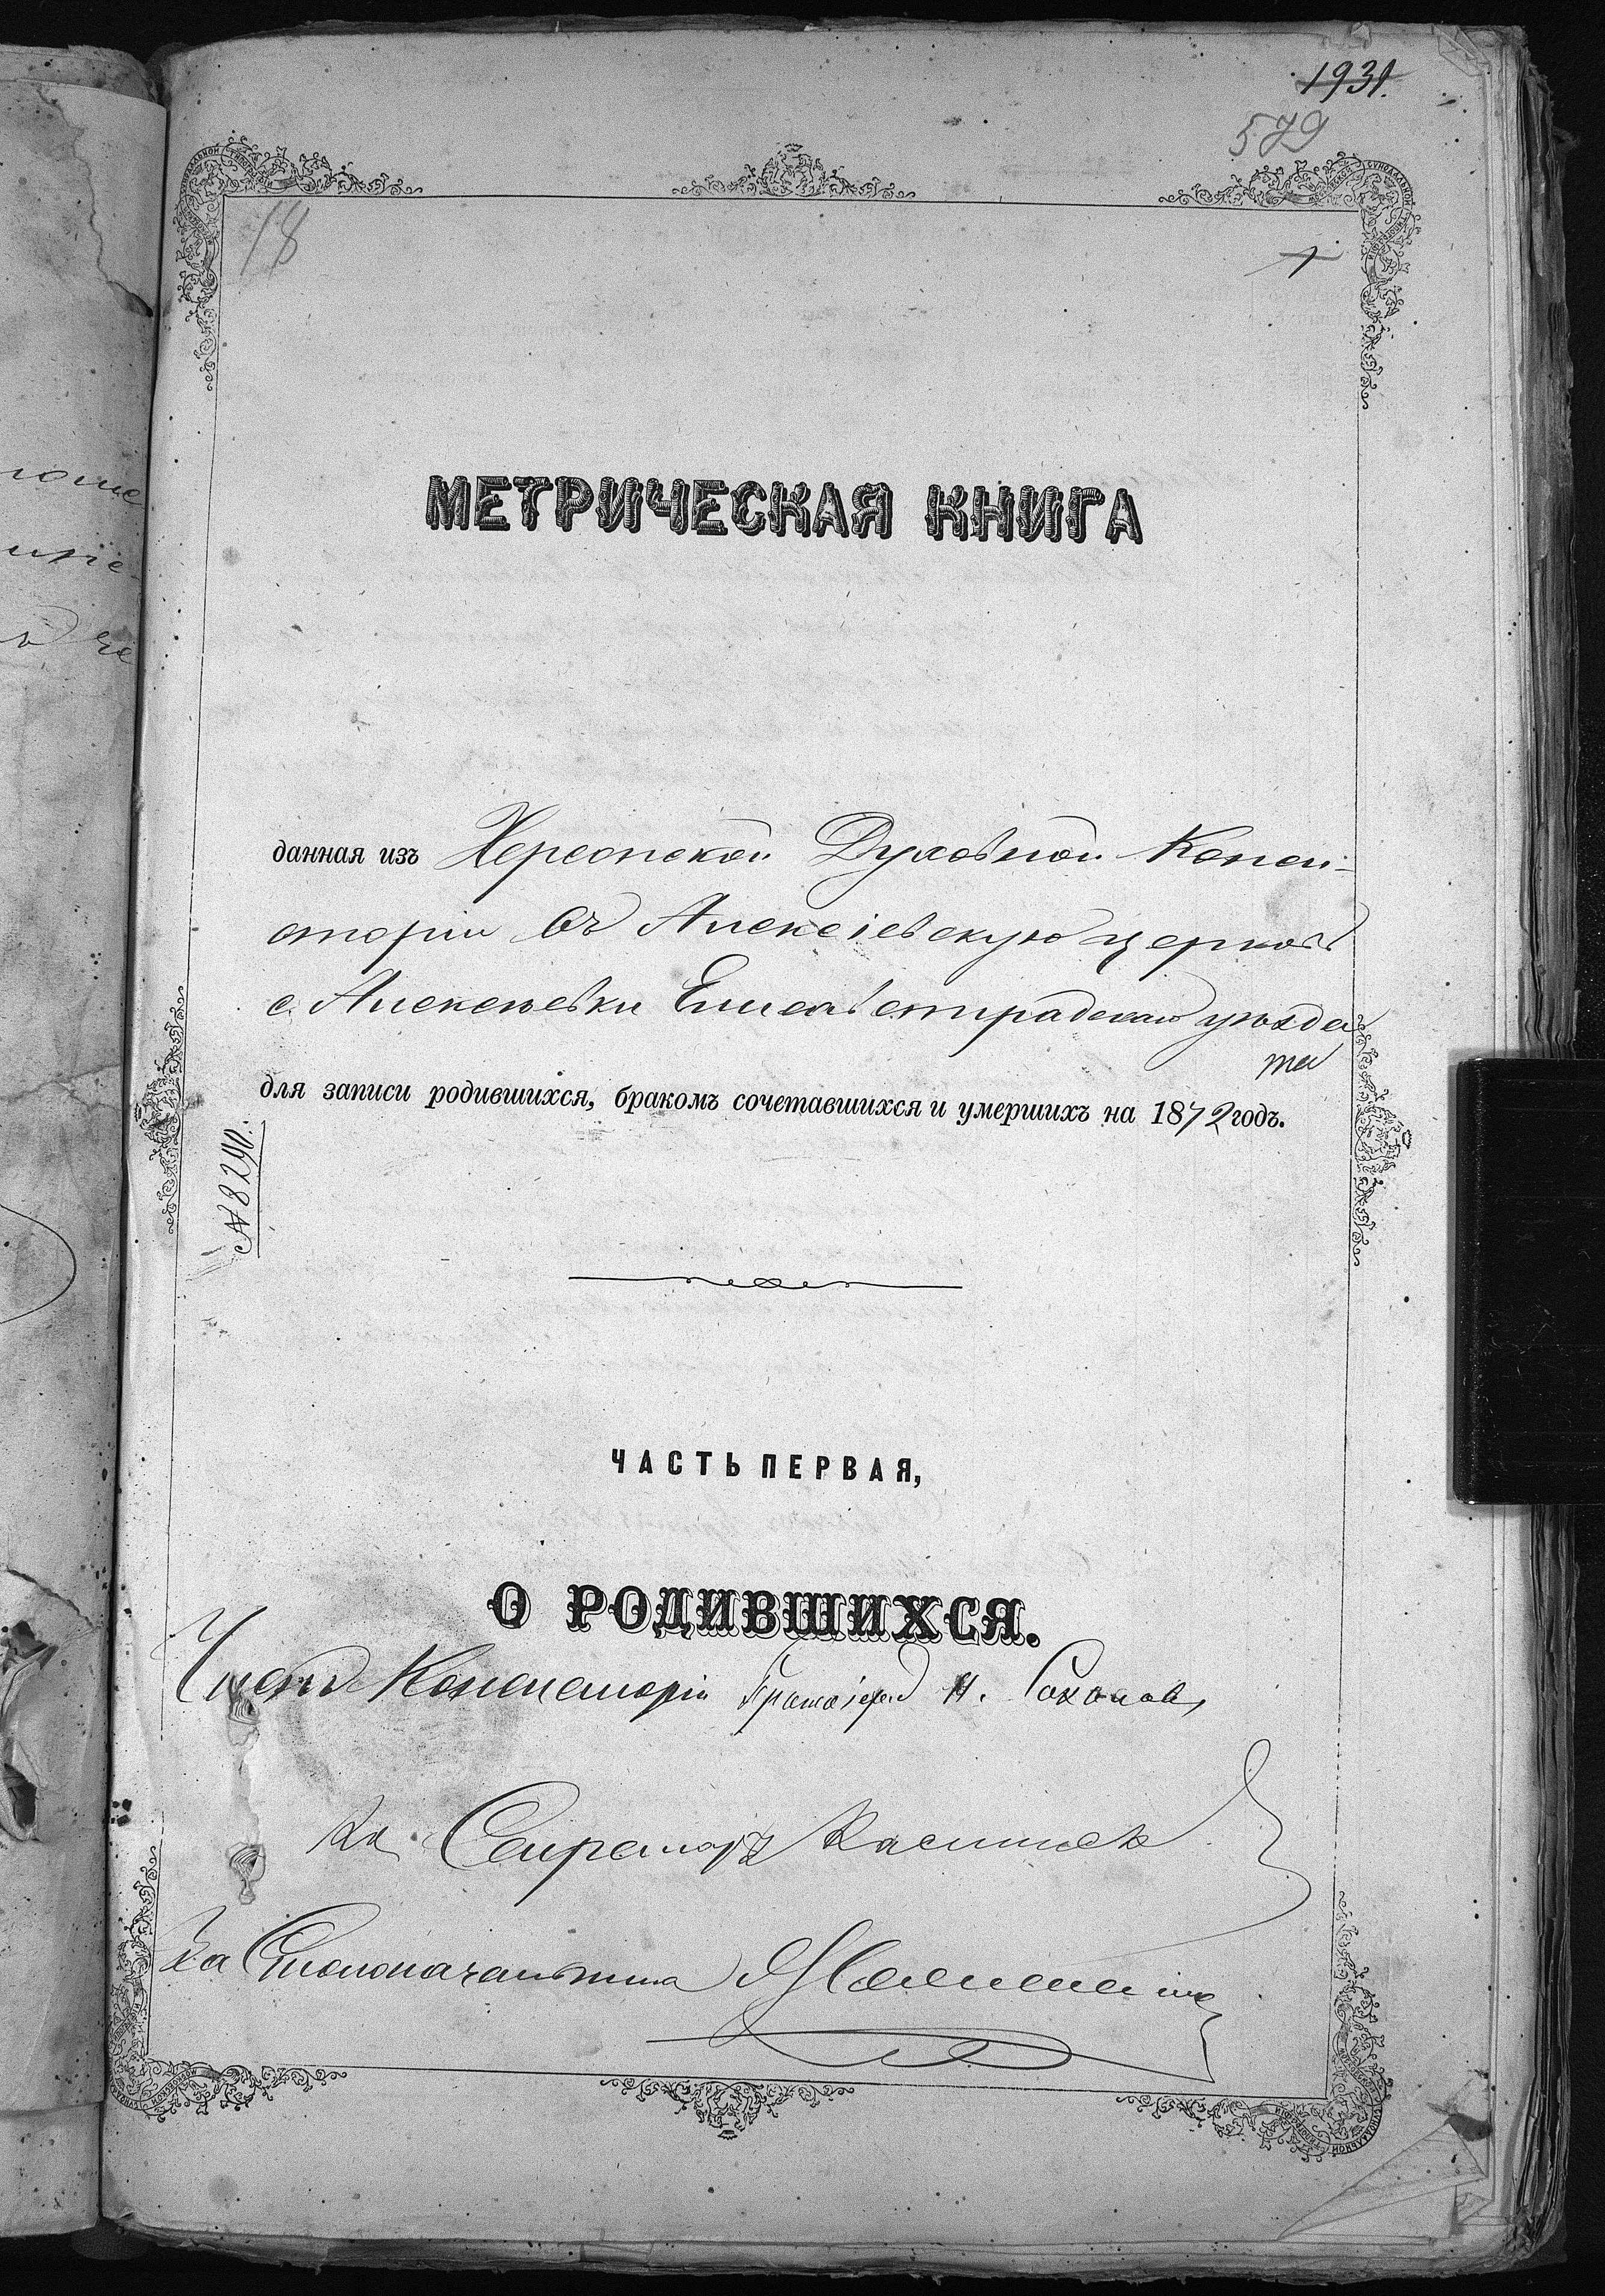 1931.
579
18
1
МЕТРИЧЕСКАЯ КНИГА
данная изъ Херсонской Духовной Конси-
сторіи въ Алексіевскую церковь
с. Алексѣевки Елисаветградскаго уѣзда
для записи родившихся, бракомъ сочетавшихся и умершихъ на 1872 годъ.
№ 8240.
ЧАСТЬ ПЕРВАЯ,
О РОДИВШИХСЯ.
Членъ Консисторіи Протоіерей
Секретарь
За Столоначальника